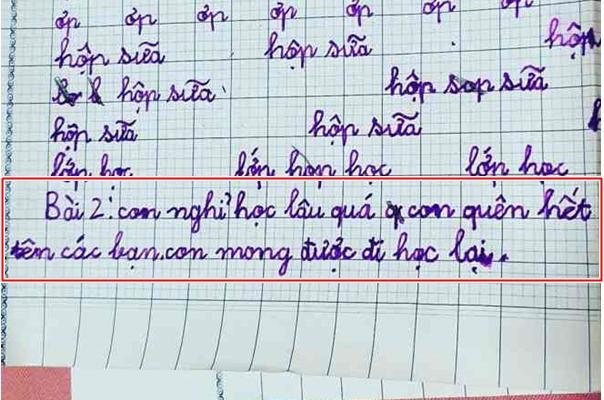 ơp ơp ơp ơp ơp ơp ơp
hộp sữa hộp sữa hộp
hộp sữa hộp sữa
hộp sữa hộp sữa
lớn học lớn học
Bài 2: con nghỉ học lâu quá con quên hết
tên các bạn. con mong được đi học lại.